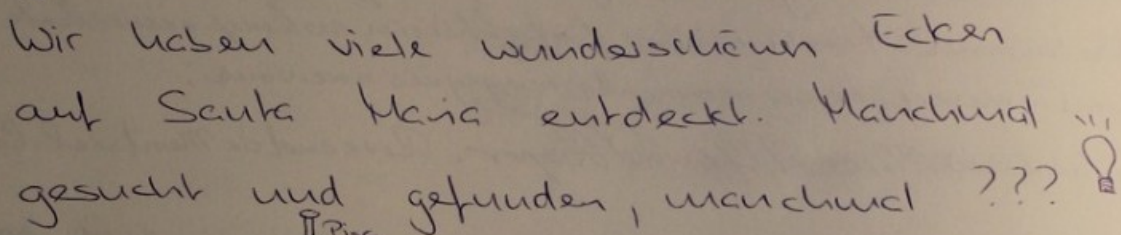 Wir haben viele wunderschönen Ecken
auf Santa Maria entdeckt. Manchmal
gesucht und gefunden, manchmal ???